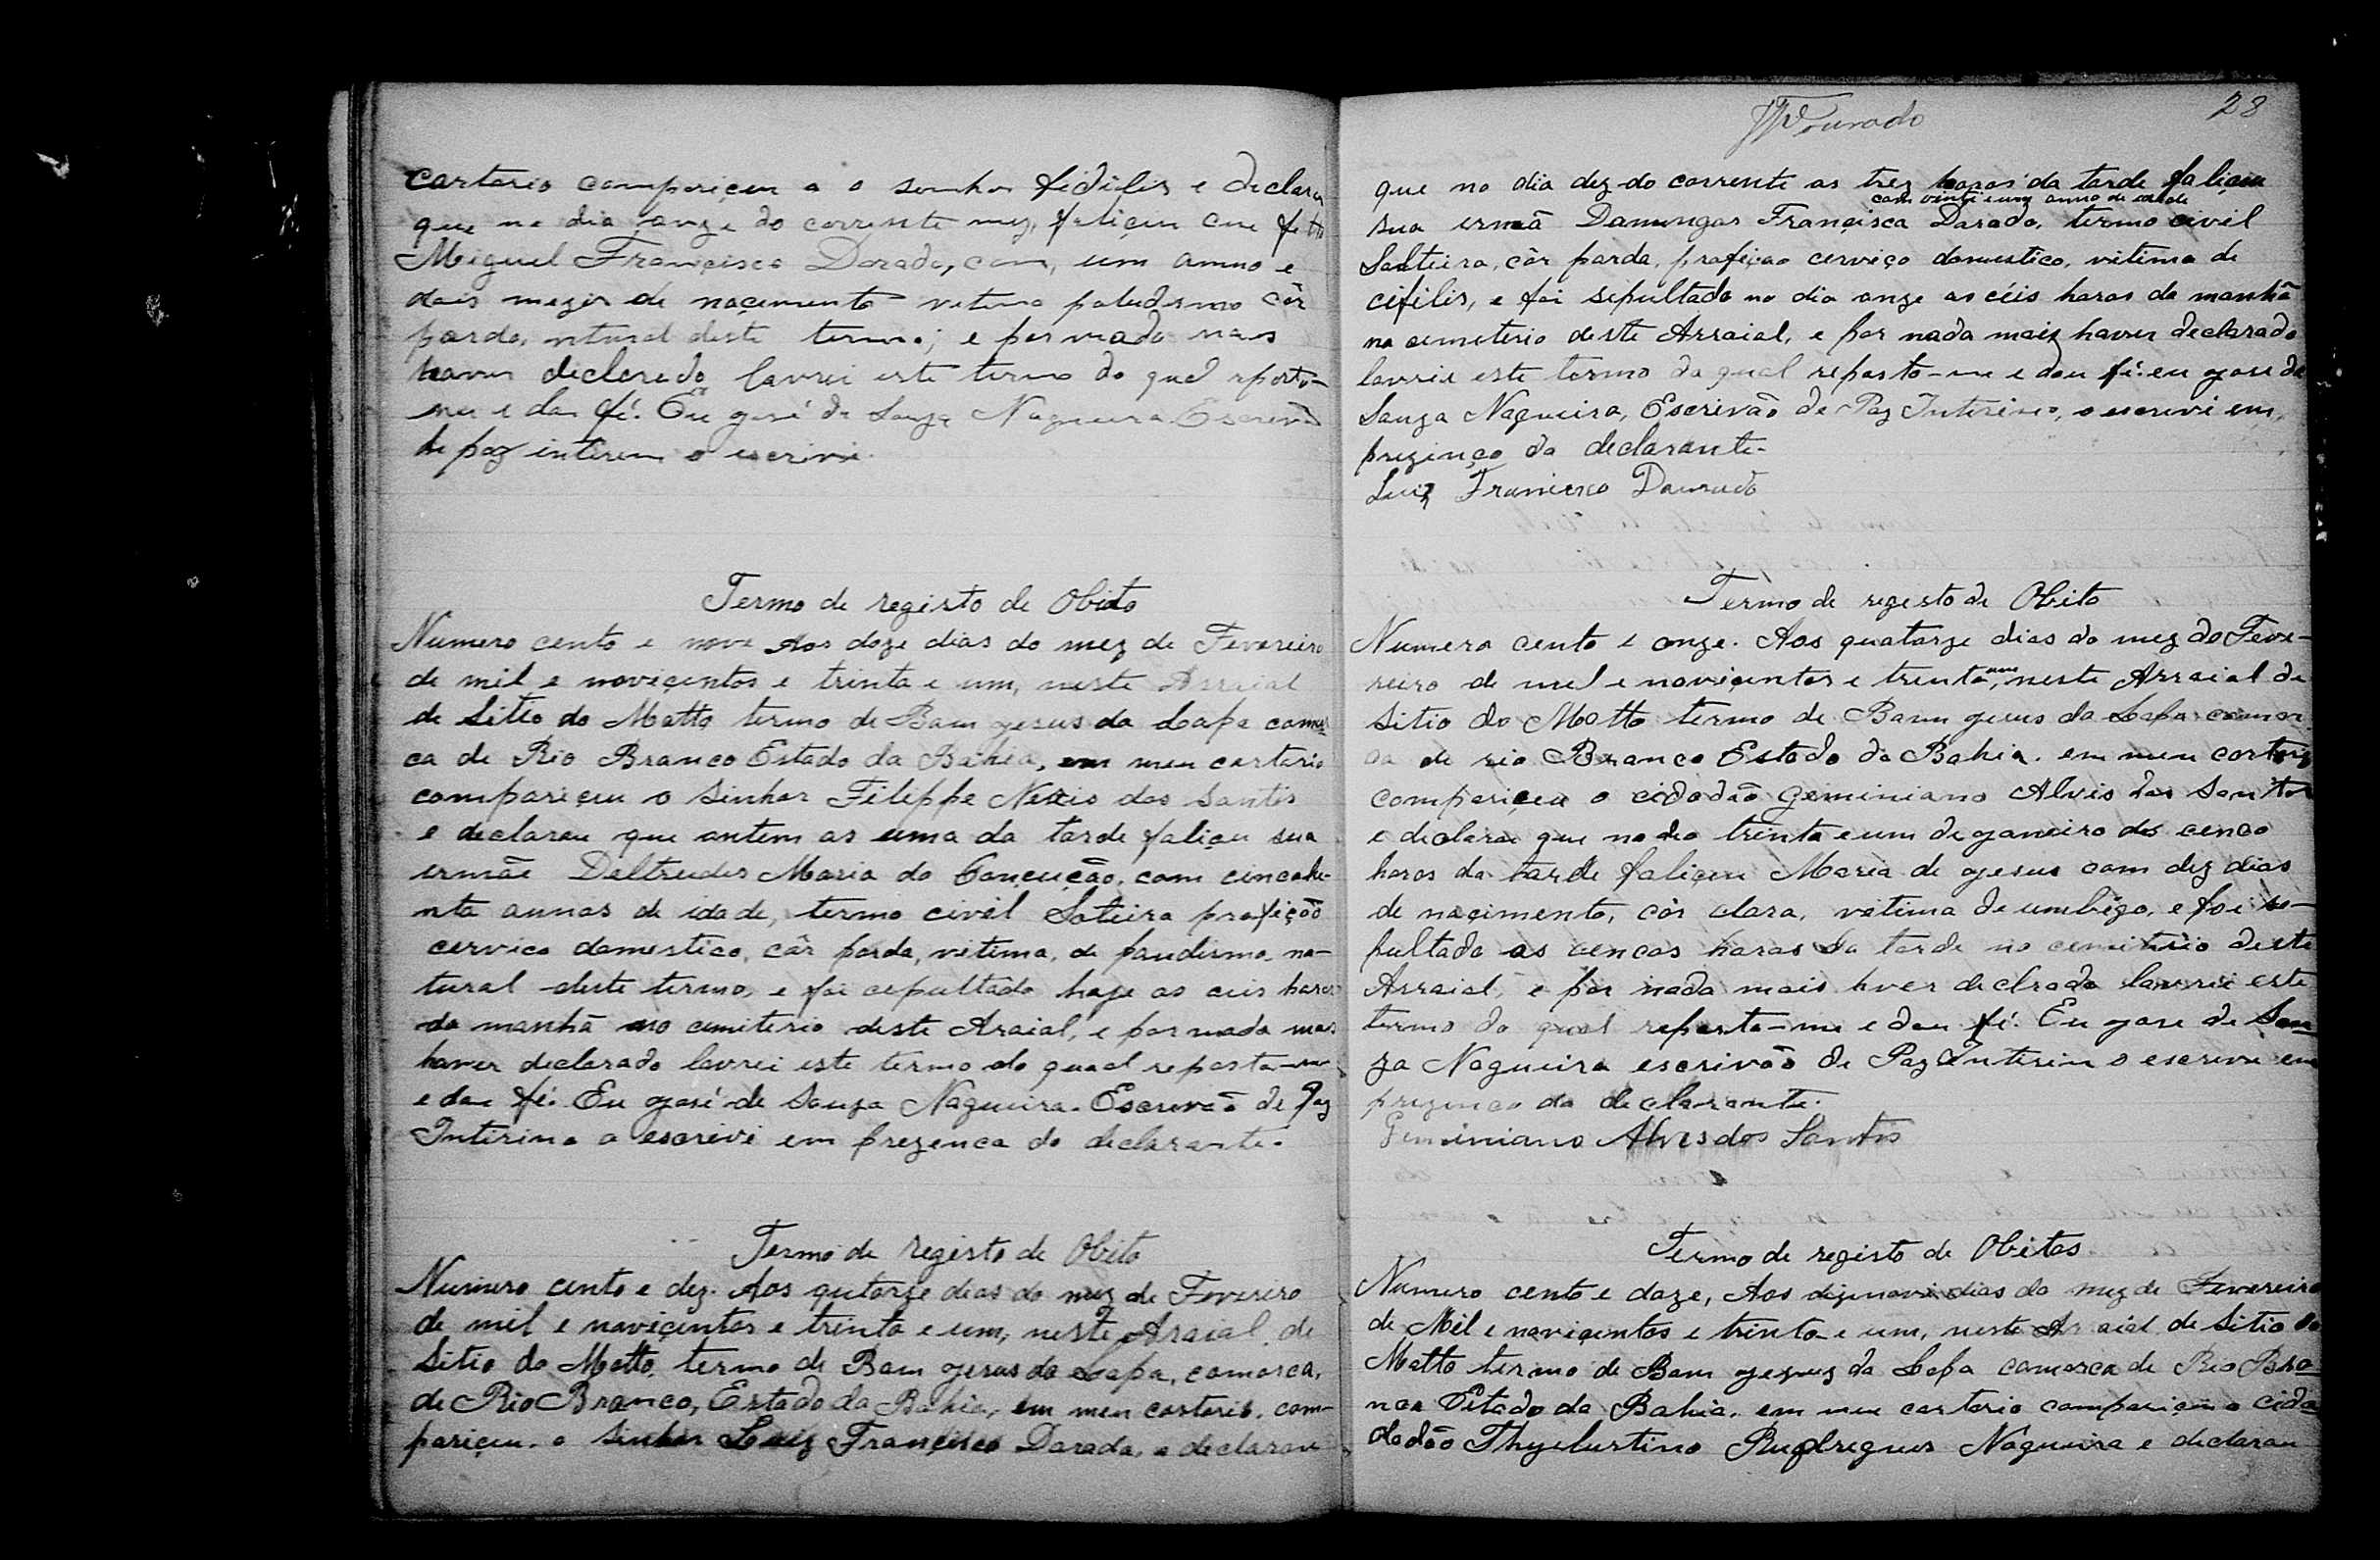 cartorio compariçeu a o senhor fidilis e declarou
que no dia onze do corrente mez, faliçeu
Miguel Françisco Dorado, com, um anno e
dois mezes de naçimento vitima paludismo côr
parda, ntural deste termo; e por nada mais
haver declarado lavrei este termo do qual reporto-
me e dou fé. Eu José de Souza Nogueira Escrivão
de paz interino o escrivi.
Termo de registo de Obito
Numero cento e nove Aos doze dias do mez de Fevereiro
de mil e noviçentos e trinta e um, neste Arraial
de Sitio do Matto termo de Bom Jesus da Lapa comar
ca de Rio Branco Estado da Bahia, em meu cartorio
compariçeu o Sinhor Filippe Neris dos Santos
e declarou que ontem as uma da tarde faliçeu sua
irmãe Deltrudes Maria da Conçeução, com cincohe-
nta annos de idade, termo civil Soteira profição
cervico domestico, côr parda, vitima, de paudismo, na-
tural deste termo, e foi cepultado hoje as ceis horas
da manhã no cimiterio deste Araial, e por nada mais
haver declarado lavrei este termo do quaal reporta-me
e dou fé. Eu José de Souza Nogueira. Escrevão de Paz
Intirino o escrivi em prezenca do declarante.
Termo de registo de Obito
Numero cento e dez. Aos qutorze dias do mez de Fevereiro
de mil e noviçentos e trinta e um, neste Araial de
Sitio do Matto, termo de Bom Jesus da Lapa, comarca,
de Rio Branco, Estado da Bahia, em meu cartorio, com-
pariçeu. o Sinhor Luiz Françisco Dorado, e declarou
Dourado
28
que no dia dez do corrente as trez horas da tarde faliçeu
com vinte e um anno de idade
sua irmã Domingas Françisca Dorado, termo civil
Solteira, côr parda, profiçao cerviço domestico, vitima de
cifilis, e foi sepultado no dia onze as céis horas da manhã
no cemeterio deste Arraial, e por nada mais haver declarado
lavrei este termo do qual reporto-me e dou fé. eu José de
Souza Nogueira, Escrivão de Paz Interino, o escrevi em,
prezinça do declarante-
Luiz Francisco Dourado
Termo de registo de Obito
Numero cento e onze. Aos quatorze dias do mez do Feve-
reiro de mil e noviçentos e trinta, um neste Arraial de
Sitio do Motto termo de Bom Jesus da Lapa comar
ca de rio Branco Estado da Bahia. em meu cartorio
compariçeu o cidadão Geminiano Alvis dos Santos
e declarou que no dia trinta e um de janeiro as cenco
horas da tarde faliçeu Maria de Jesus com dez dias
de naçimento, côr clara, vitima de umbigo, e foi se-
pultado as cencos horas da tarde no cemiterio deste
Arraial, e por nada mais hver declrado lavrei este
termo do qual reporta-me e dou fé. Eu Jose de Sou
za Nogueira escrivão de Paz Interin o escrevi em
prezenca do declarante.
Geminiano Alves dos Santos
Termo de registo de Obitos
Numero cento e doze, Aos dizinove dias do mez de Fevereiro
de Mil e noviçentos e trinta e um, neste Ar aial de Sitio do
Matto termo de Bom Jezuz da Lapa comarca de Rio Bra
nco Estado da Bahia, em meu cartorio compariçeu o cida
dadão Thyelustino Rudregues Nogueira e declarou